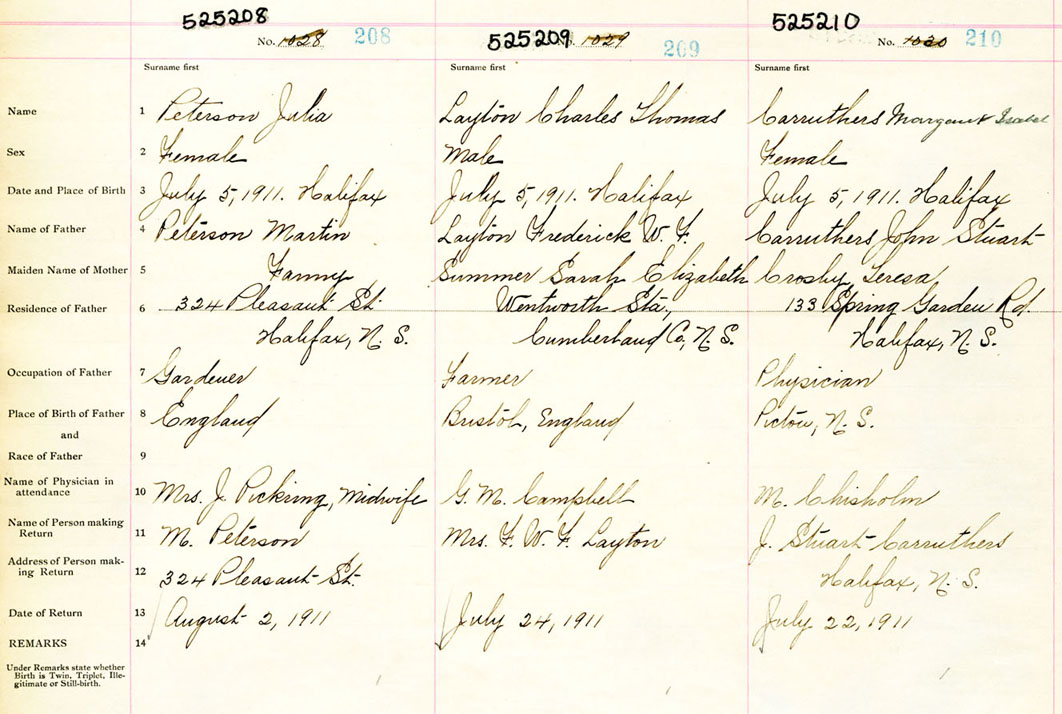 525208 525209 525210
No. 1028 208 No. 1029 209 No. 1030 210
Surname first Surname first Surname first
Name 1 Peterson Julia Layton Charles Thomas Carruthers Margaret Isabel
Sex 2 Female Male Female
Date and Place of Birth 3 July 5, 1911. Halifax July 5, 1911. Halifax July 5, 1911. Halifax
Name of Father 4 Peterson Martin Layton Frederick W. F. Carruthers John Stuart
Maiden Name of Mother 5 Fanny Summer Sarah Elizabeth Crosby Teresa
Residence of Father 6 324 Pleasant St. Wentworth Sta., 133 Spring Garden Rd.
Halifax, N. S. Cumberland Co, N. S. Halifax, N. S.
Occupation of Father 7 Gardener Farmer Physician
Place of Birth of Father 8 England Bristol, England Pictou, N. S.
and
Race of Father 9
Name of Physician in
attendance 10 Mrs. J. Pickring, Midwife G. M. Campbell M. Chisholm
Name of Person making
Return 11 M. Peterson Mrs. F. W. F. Layton J. Stuart Carruthers
Address of Person mak-
ing Return 12 324 Pleasant St. Halifax, N. S.
Date of Return 13 August 2, 1911 July 24, 1911 July 22, 1911
REMARKS 14
Under Remarks state whether
Birth is Twin, Triplet, Ille-
gitimate or Still-birth.